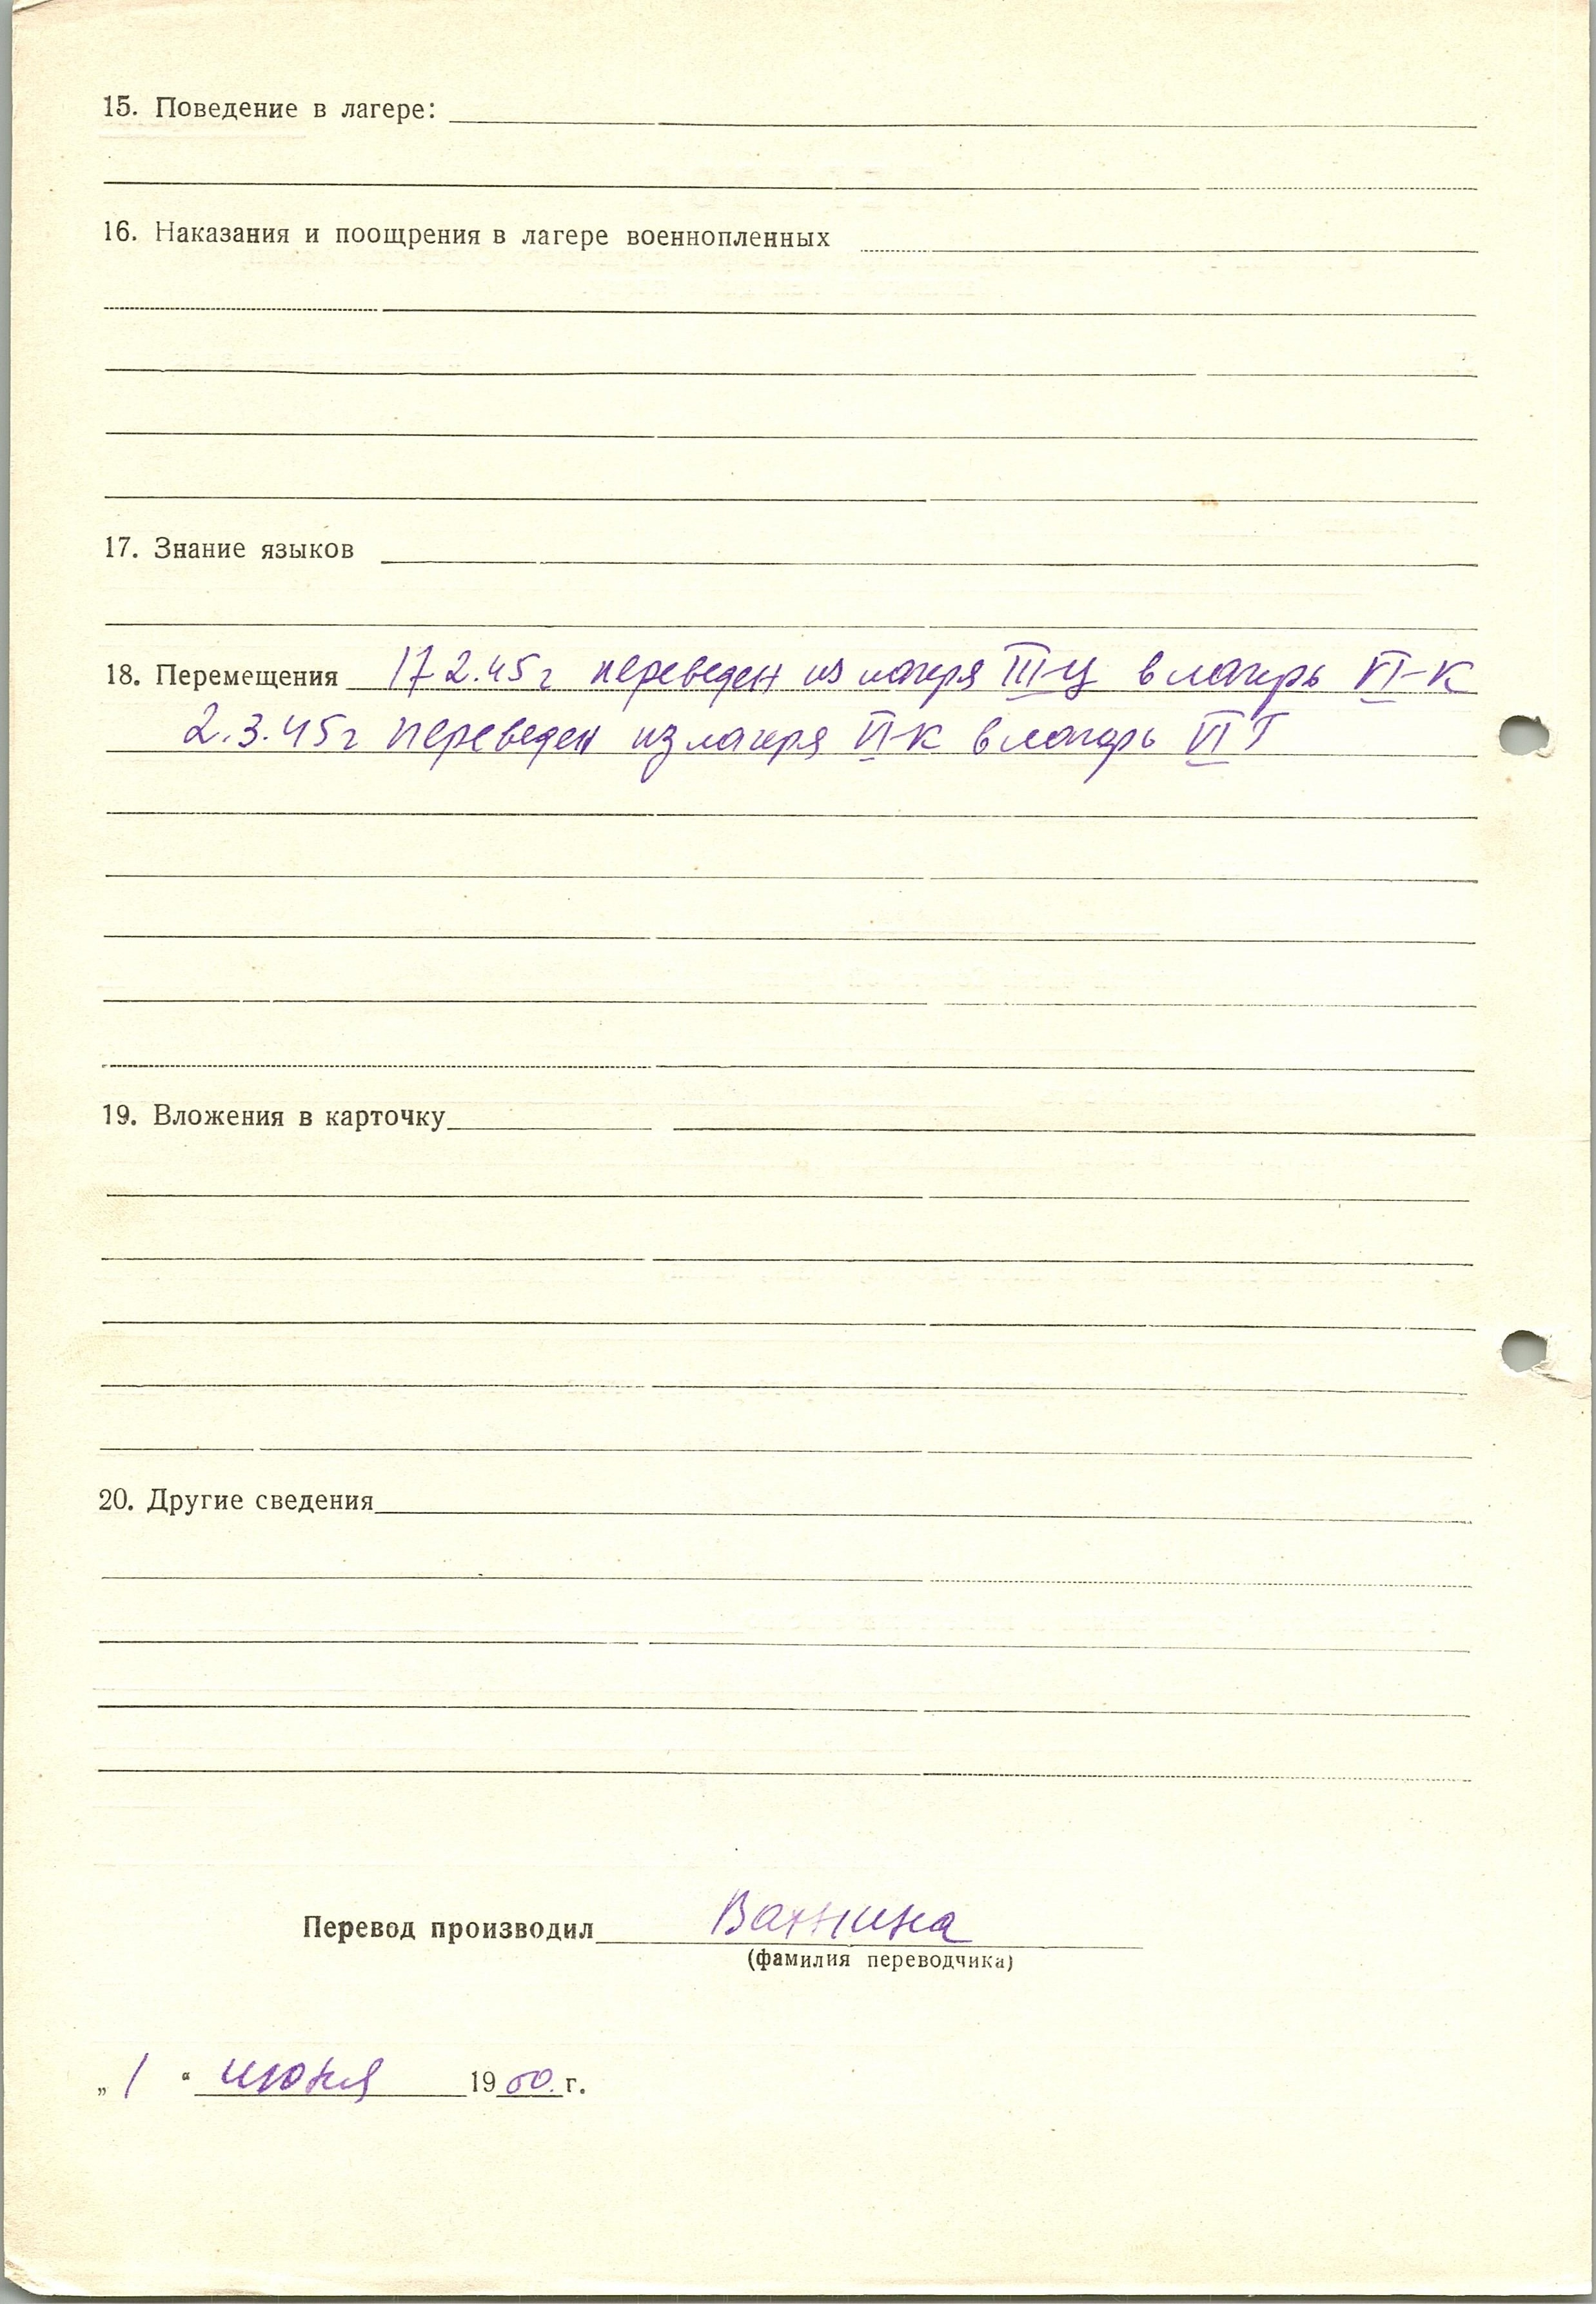 15. Поведение в лагере:
16. Наказания и поощрения в лагере военнопленных
17. Знание языков
18. Перемещения 17 2.45 г переведен из лагеря III-Ц в лагерь VI-К
2.3.45 г переведен из лагеря VI-К в лагерь VI Г
19. Вложения в карточку
20. Другие сведения
Перевод производил Ванина
(фамилия переводчика)
„ 1 “ июня 19 50. г.